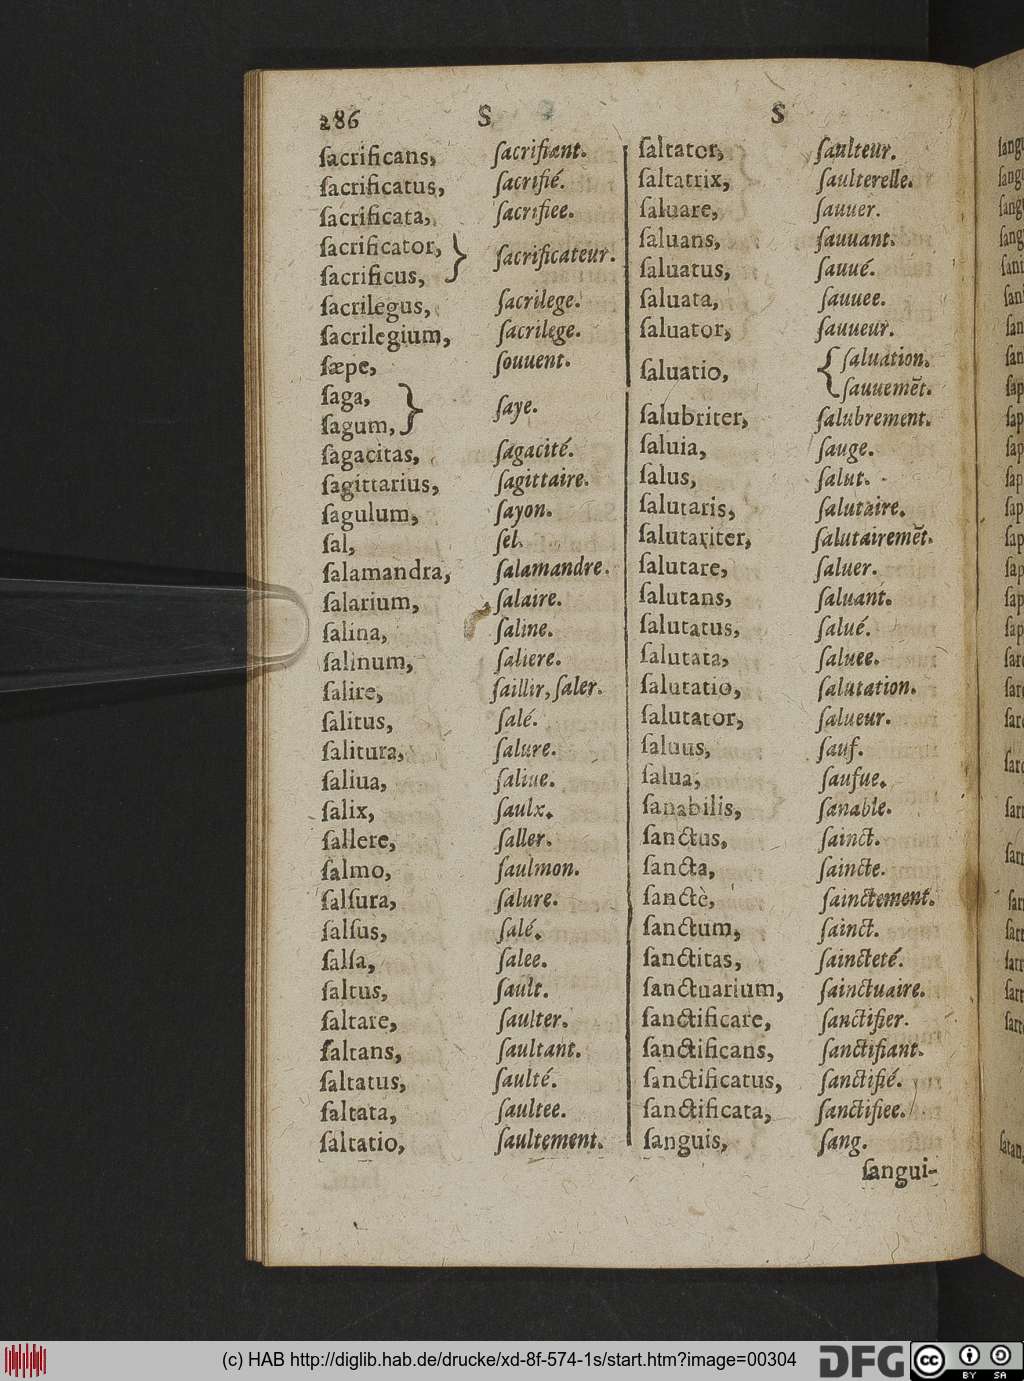 286 S S
ſacrificans, ſacrifiant.
ſacrificatus, ſacrifié.
ſacrificata, ſacrifiee.
ſacrificator, } ſacrificateur.
ſacrificus,
ſacrilegus, ſacrilege.
ſacrilegium, ſacrilege.
ſæpe, ſouuent.
ſaga, } ſaye.
ſagum,
ſagacitas, ſagacité.
ſagittarius, ſagittaire.
ſagulum, ſayon.
ſal, ſel.
ſalamandra, ſalamandre.
ſalarium, ſalaire.
ſalina, ſaline.
ſalinum, ſaliere.
ſalire, ſaillir, ſaler.
ſalitus, ſalé.
ſalitura, ſalure.
ſaliua, ſaliue.
ſalix, ſaulx.
ſallere, ſaller.
ſalmo, ſaulmon.
ſalſura, ſalure.
ſalſus, ſalé.
ſalſa, ſalee.
ſaltus, ſault.
ſaltare, ſaulter.
ſaltans, ſaultant.
ſaltatus, ſaulté.
ſaltata, ſaultee.
ſaltatio, ſaultement.
ſaltator, ſaulteur.
ſaltatrix, ſaulterelle.
ſaluare, ſauuer.
ſaluans, ſauuant.
ſaluatus, ſauué.
ſaluata, ſauuee.
ſaluator, ſauueur.
ſaluatio, { ſaluation.
ſauuemẽt.
ſalubriter, ſalubrement.
ſaluia, ſauge.
ſalus, ſalut.
ſalutaris, ſalutaire.
ſalutariter, ſalutairemẽt.
ſalutare, ſaluer.
ſalutans, ſaluant.
ſalutatus, ſalué.
ſalutata, ſaluee.
ſalutatio, ſalutation.
ſalutator, ſalueur.
ſaluus, ſauf.
ſalua, ſaufue.
ſanabilis, ſanable.
ſanctus, ſainct.
ſancta, ſaincte.
ſanctè, ſainctement.
ſanctum, ſainct.
ſanctitas, ſaincteté.
ſanctuarium, ſainctuaire.
ſanctificare, ſanctifier.
ſanctificans, ſanctifiant.
ſanctificatus, ſanctifié.
ſanctificata, ſanctifiee.
ſanguis, ſang.
ſangui-
(c) HAB http://diglib.hab.de/drucke/xd-8f-574-1s/start.htm?image=00304
DFG
cc BY SA